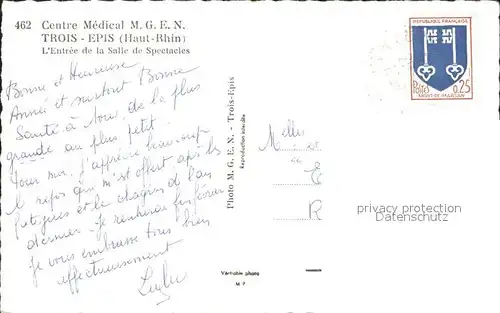 462 Centre Médical M. G. E. N.
TROIS - EPIS (Haut-Rhin)
L'Entrée de la Salle de Spectacles
Bonne et Heureuse
Année et surtout Bonne
Santé à tous, de la plus
grande au plus petit.
Pour moi, j'apprécie beaucoup
le repos qui m'est offert après les
fatigues et le chagrin de l'an
dernier. Je rentrerai fin février
Je vous embrasse tous bien
affectueusement
Photo M. G. E. N. - Trois-Epis
Reproduction interdite
Véritable photo
M P
RÉPUBLIQUE FRANÇAISE
POSTES 0,25
MONT-DE-MARSAN
Melles
E
R
privacy protection
Datenschutz